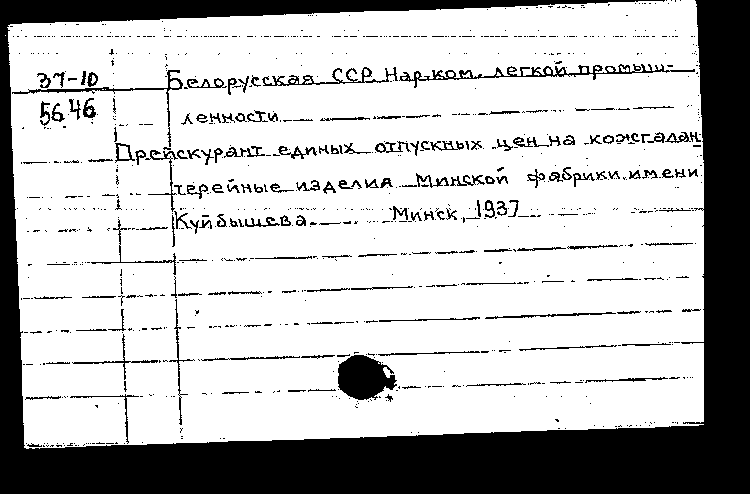 37-10
Белорусская ССР Нар.ком. легкой промыш-
5646
ленности
Прейскурант единых отпускных цен на кожгалан-
терейные изделия Минской фабрики имени
Куйбышева. Минск, 1937